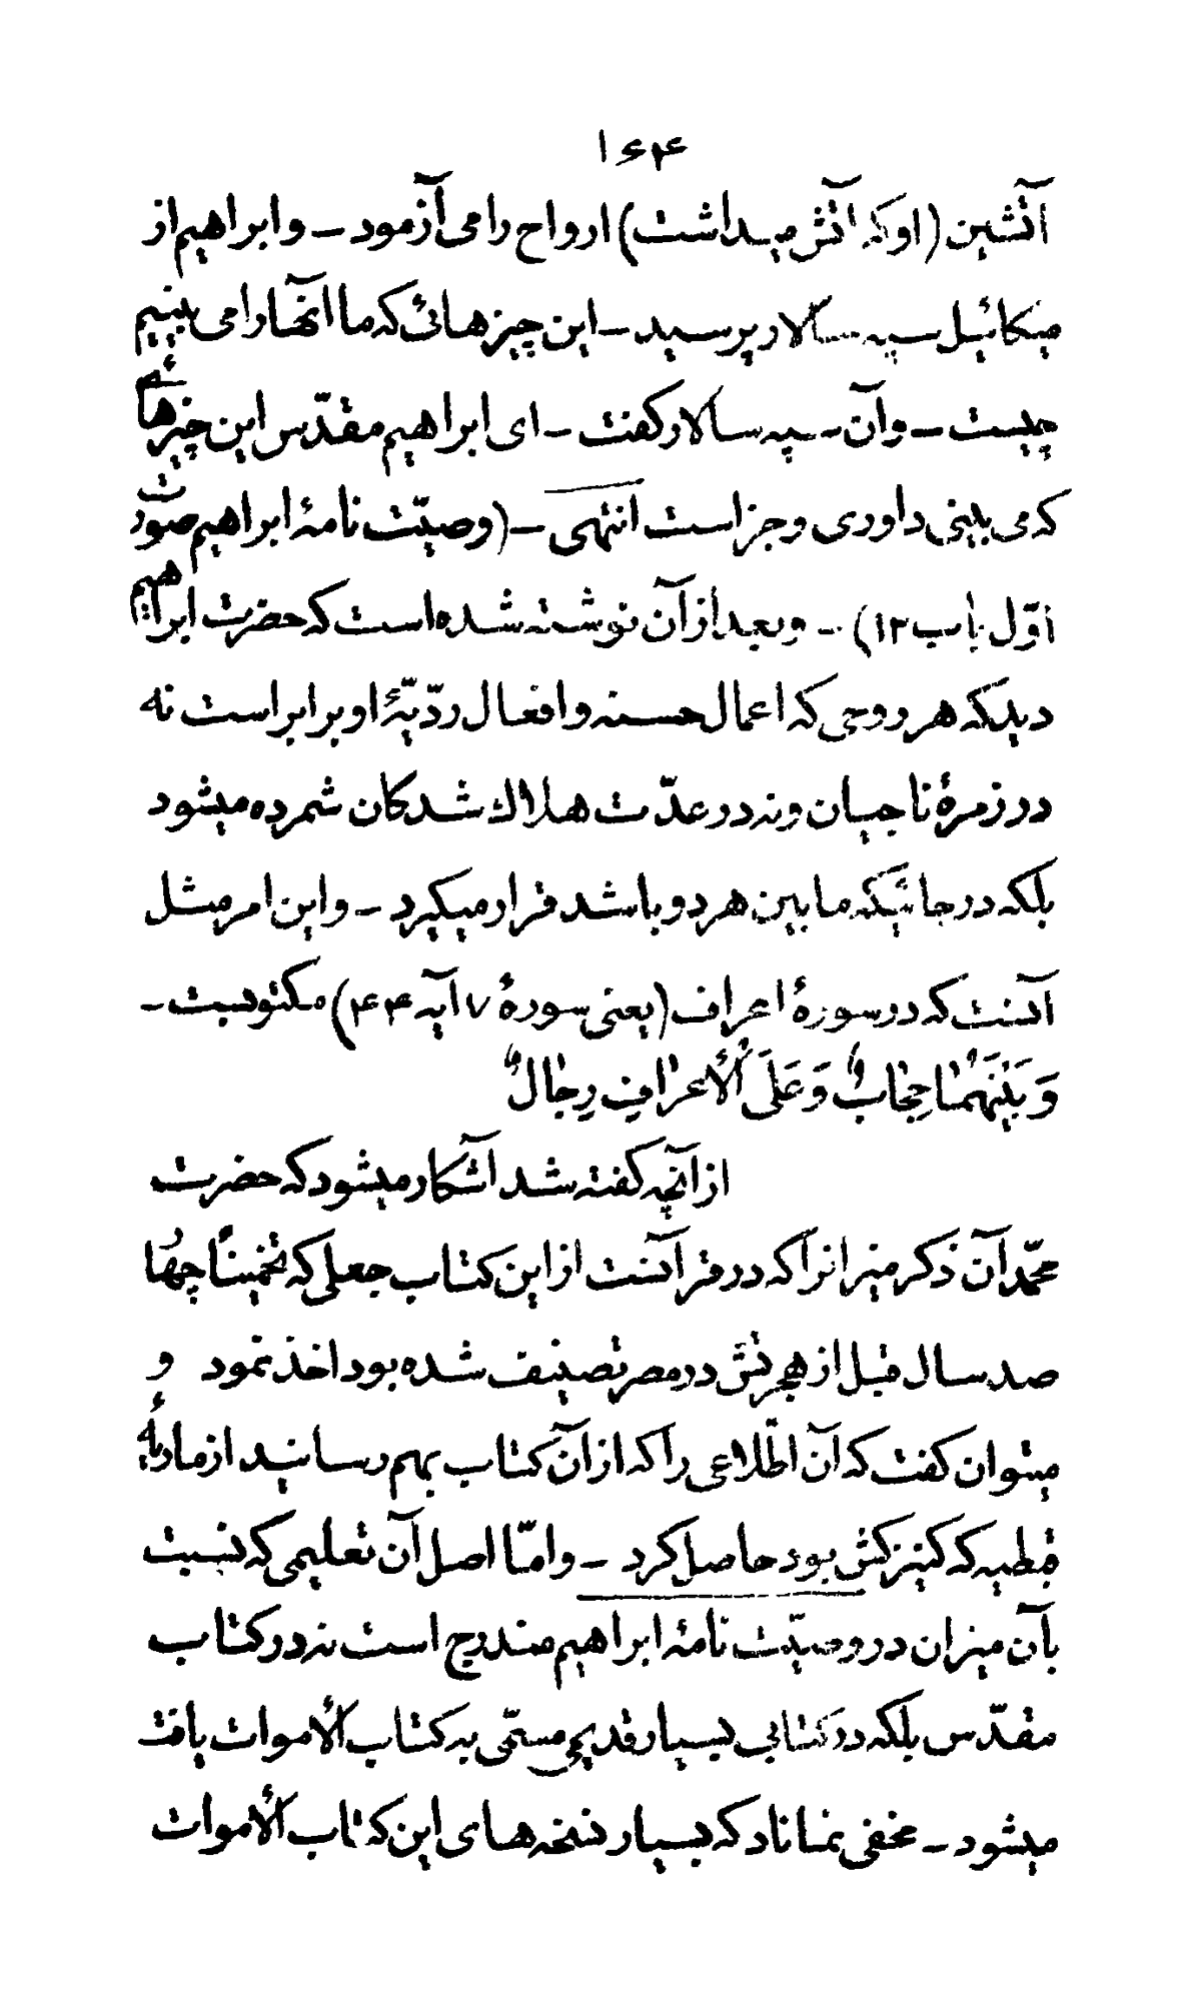 ۱۶۴
آتشین (او که آتش میداشت) ارواح را می آزمود - و ابراهیم از
میکائیل سپه سالار پرسید - این چیزهائی که ما آنها را می بینیم
چیست - و آن سپه سالار گفت - ای ابراهیم مقدّس این چیزهائی
که می بینی داوری و جزاست انتهی - (وصیّت نامهٔ ابراهیم صورت
اوّل باب ۱۲) - و بعد از آن نوشته شده است که حضرت ابراهیم
دید که هر روحی که اعمال حسنه و افعال ردّیّهٔ او برابر است نه
در زمرهٔ ناجیان و نه در عدّت هلاك شدکان شمرده میشود
بلکه در جائیکه مابین هر دو باشد قرار میکیرد - و این امر مثل
آنست که در سورهٔ اعراف (یعنی سورهٔ ۷ آیه ۴۴) مکتوبست -
وَبَيْنَهُمَا حِجَابٌ وَعَلَى الْأَعْرَافِ رِجَالٌ
از آنچه کفته شد آشکار میشود که حضرت
محمّد آن ذکر میزانرا که در قرآنست از این کتاب جعلی که تخمیناً چهار
صد سال قبل از هجرتش در مصر تصنیف شده بود اخذ نمود و
میتوان کفت که آن اطّلاعی را که از آن کتاب بهم رسانید از ماریهٔ
قبطیه که کنیزکش بود حاصل کرد - و امّا اصل آن تعلیمی که نسبت
بآن میزان در وصیّت نامهٔ ابراهیم مندرج است نه در کتاب
مقدّس بلکه در کتابی بسیار قدیمی مسمّی به کتاب الأموات یافت
میشود - مخفی نماناد که بسیار نسخه های این کتاب الأموات